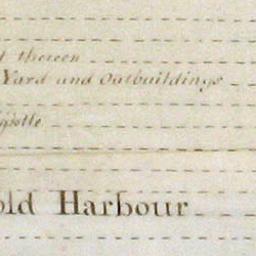 t thereon
Yard and Outbuildings
old Harbour